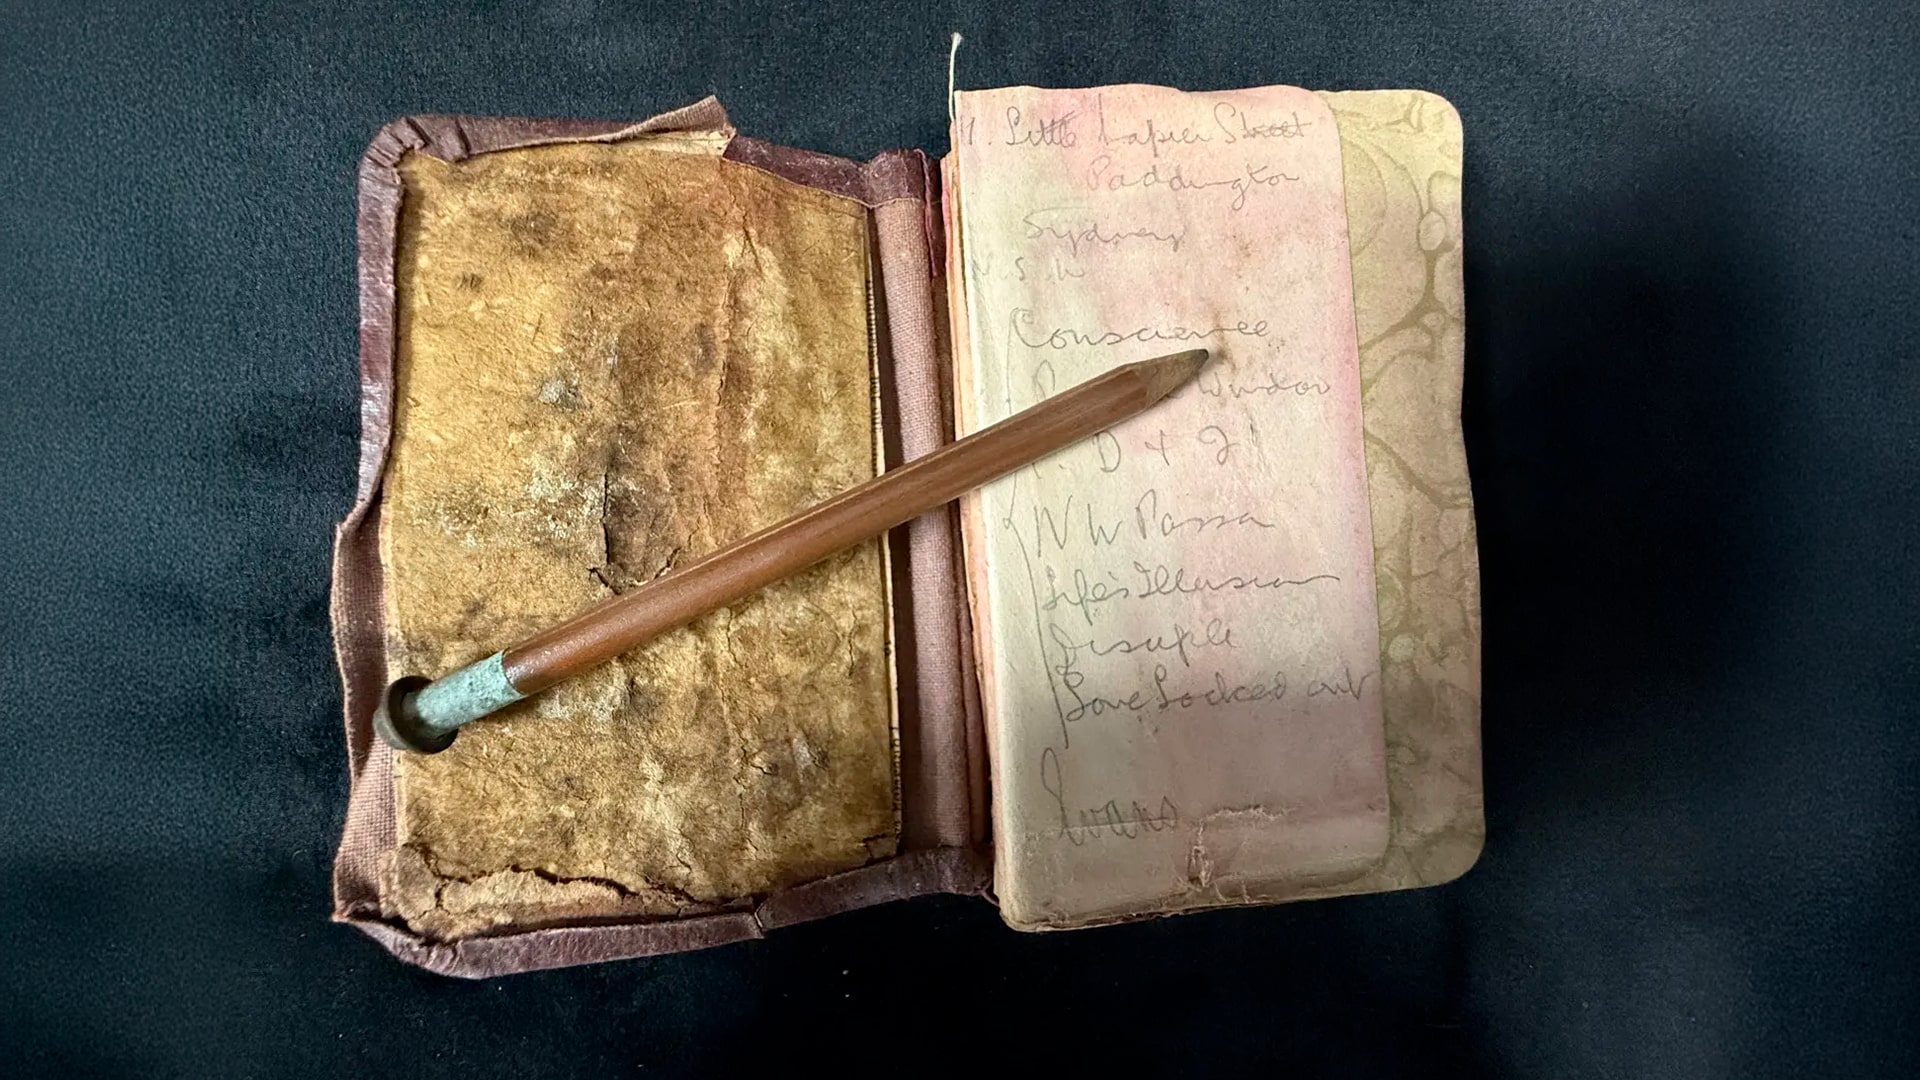 Little Street
Paddington
Sydney
N. S. W
Conscience
Window
D + J
N W Passa
Life's Illusion
Disciple
Love Locked out
Evans